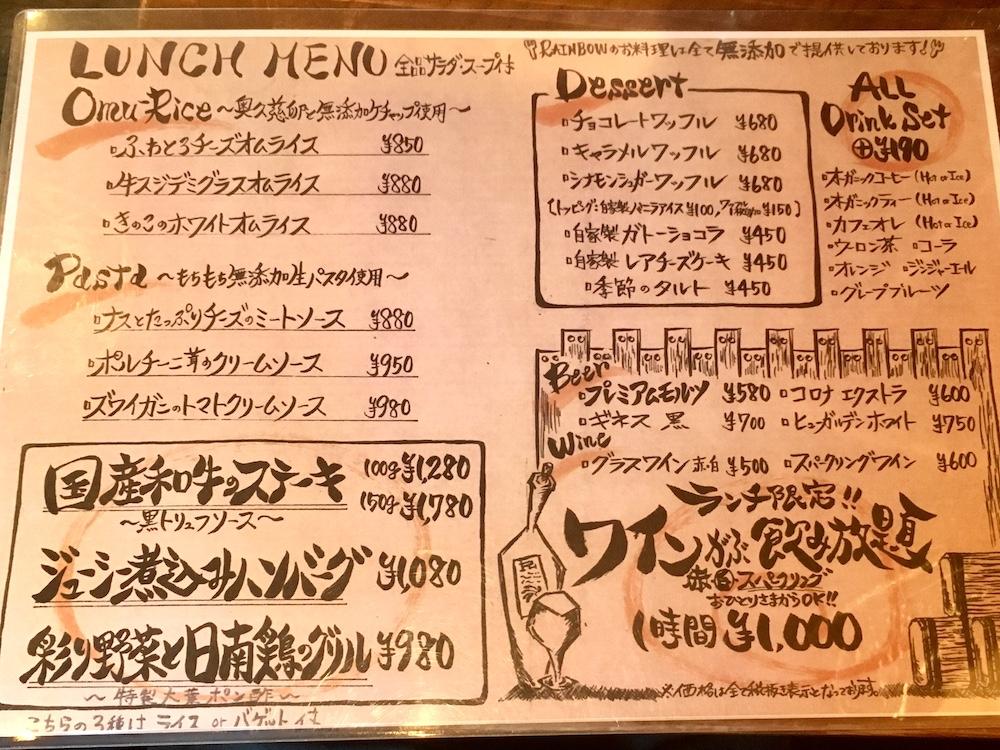 LUNCH MENU 全品サラダ・スープ付
Omu-Rice 〜奥久慈卵と無添加ケチャップ使用〜
ふわとろチーズオムライス ¥850
牛スジデミグラスオムライス ¥880
きのこのホワイトオムライス ¥880
Pasta 〜もちもち無添加生パスタ使用〜
ナスとたっぷりチーズのミートソース ¥880
ポルチーニ茸のクリームソース ¥950
ズワイガニのトマトクリームソース ¥980
国産和牛のステーキ 100g ¥1,280
150g ¥1,780
〜黒トリュフソース〜
ジューシー煮込みハンバーグ ¥1,080
彩り野菜と日南鶏のグリル ¥980
〜特製大葉ポン酢〜
こちらの3種は ライス or バゲット付
RAINBOWのお料理は全て無添加で提供しております!
Dessert
チョコレートワッフル ¥680
キャラメルワッフル ¥680
シナモンシュガーワッフル ¥680
[トッピング:自家製バニラアイス ¥100, ¥150]
自家製ガトーショコラ ¥450
自家製レアチーズケーキ ¥450
季節のタルト ¥450
ALL
Drink Set
⊕¥190
オーガニックコーヒー (Hot or Ice)
オーガニックティー (Hot or Ice)
カフェオレ (Hot or Ice)
ウーロン茶 コーラ
オレンジ ジンジャーエール
グレープフルーツ
Beer
プレミアムモルツ ¥580 コロナ エクストラ ¥600
ギネス 黒 ¥700 ヒューガルデンホワイト ¥750
Wine
グラスワイン 赤・白 ¥500 スパークリングワイン ¥600
ランチ限定!!
ワインがぶ飲み放題
赤・白・スパークリング
おひとりさまからOK!!
1時間 ¥1,000
※価格は全て税抜き表示となっております。